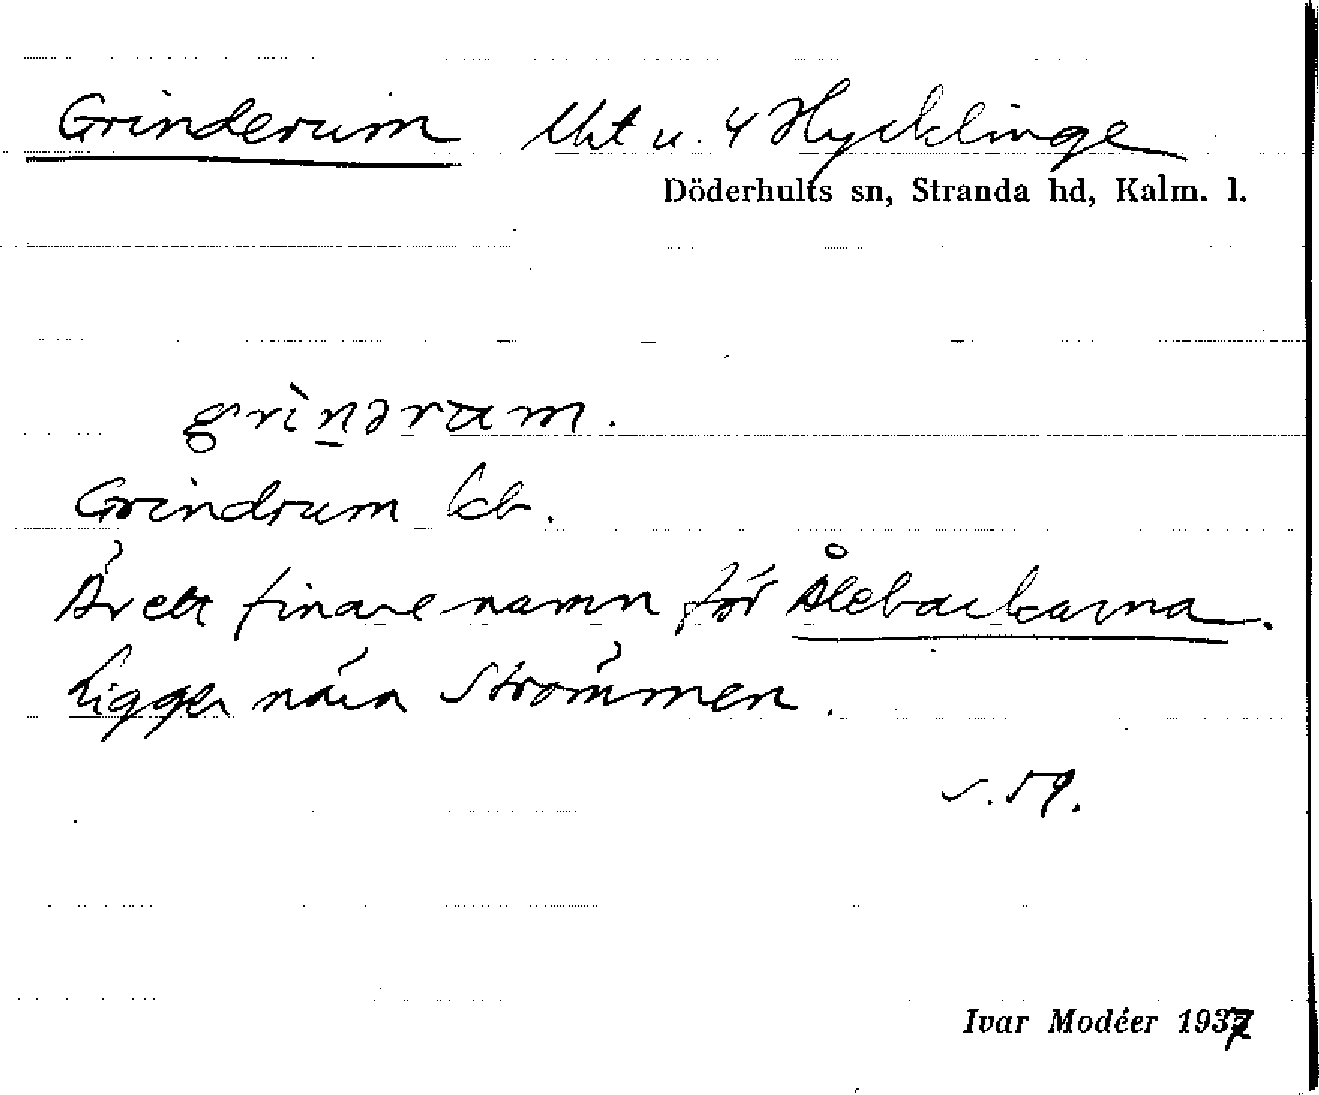 Grinderum Uht u. 4 Hycklinge
Döderhults sn, Stranda hd, Kalm. l.
grìnəram.
Grindrum kb.
Är ett finare namn för Ålebackarna.
Ligger nära Strömmen.
s. 59.
Ivar Modéer 1937